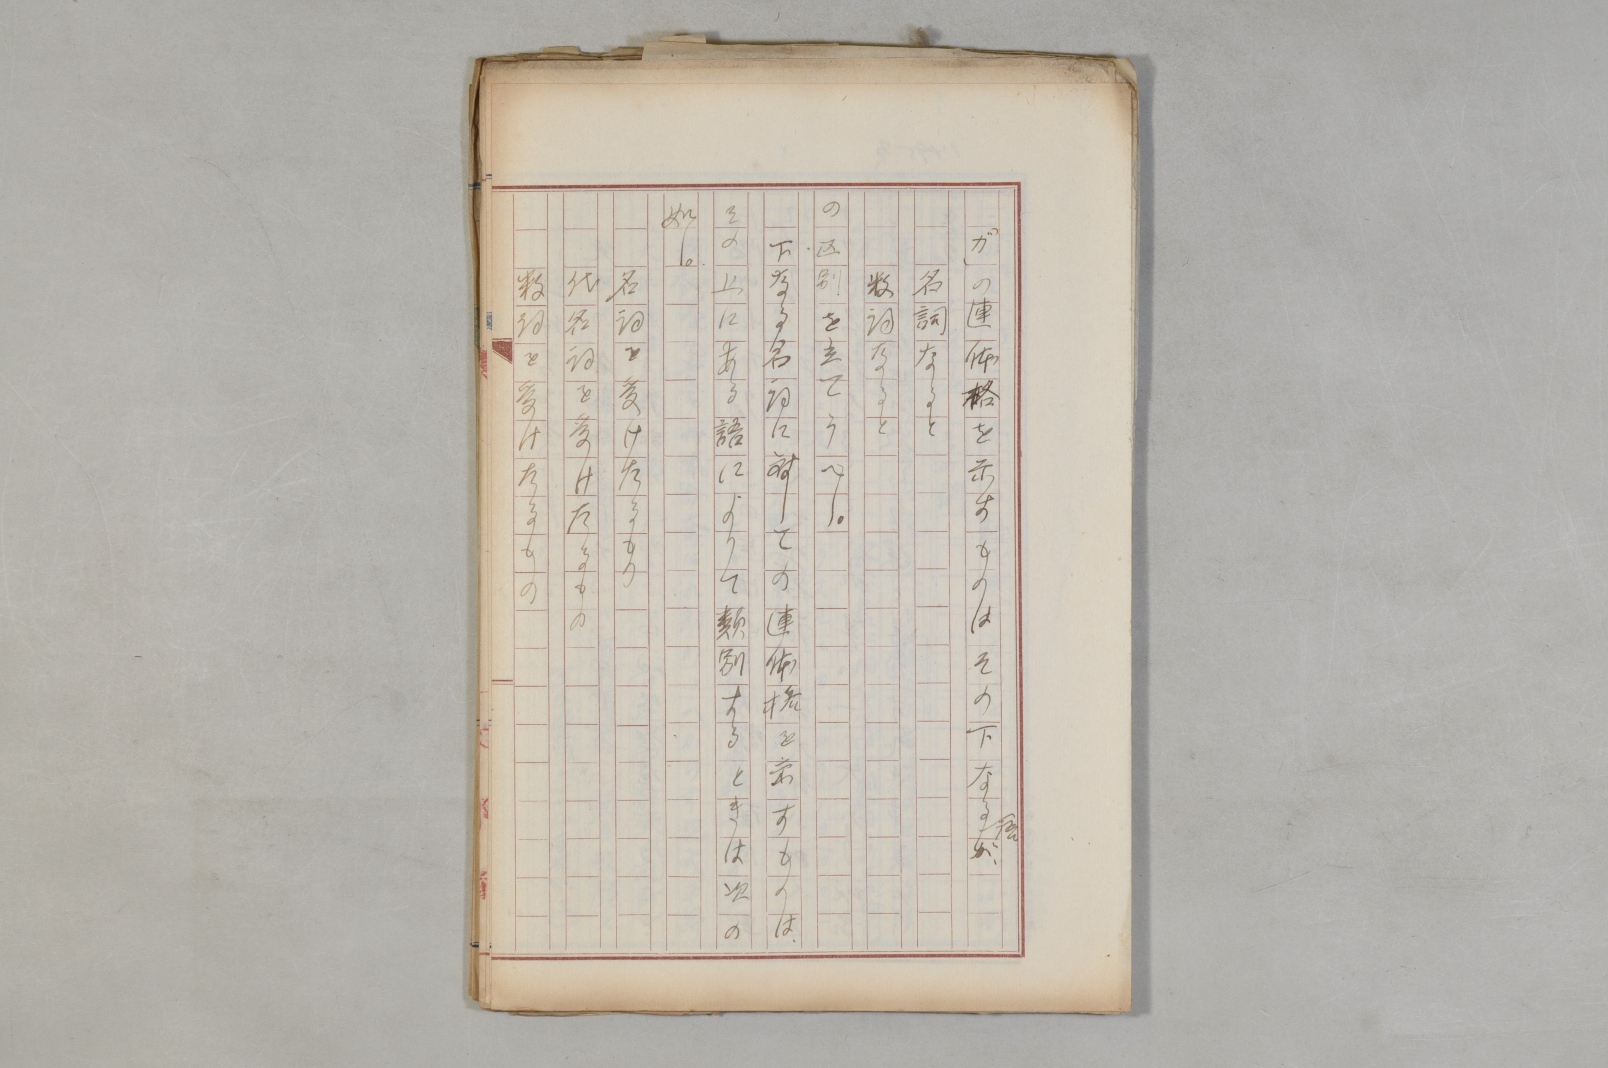 「が」の連体格を示すものはその下なる語が、
名詞なると
数詞なると
の区別を立てうべし。
下なる名詞に対しての連体格を示すものは、
その上にある語によりて類別するときは次の
如し。
名詞を受けたるもの
代名詞を受けたるもの
数詞を受けたるもの